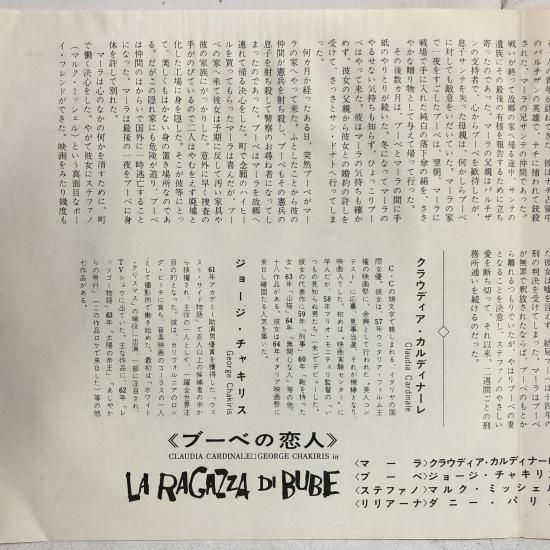 のパルチザンの英雄で、ナチに捕われて銃殺
された、マーラの兄サンテの仲間であった。
戦いが終って故郷の家へ帰る途中、サンテの
遺族にその最後の有様を報告するために立ち
寄ったのであった。マーラの父親はパルチザ
ンの支持者で、心からブーベを歓待したが、
息子サンテを失った母親は、何かしらブーベ
に対しても敵意をいだいていた。マーラの家
で一夜をすごしたブーベは、翌朝、マーラに
戦場で手に入れた純白の落下傘の絹を、ささ
やかな贈り物として与えて帰って行った。
その後数カ月は、ブーベとマーラの間に手
紙のやりとりが続いた。冬になってマーラの
やるせない気持ちも知らず、ひょっこりブー
ベはやって来た。彼はマーラの気持ちも確か
めず、彼女の父親から彼女との婚約の許しを
受けて、さっさとサン・ドナトへ行ってしま
った。
何カ月か経ったある日、突然ブーベがマー
ラの家へやって来た。というところから彼の
仲間が憲兵を射ち殺し、ブーベもその憲兵の
息子を射ち殺して警察のお尋ね者になってし
まったのであった。ブーベはマーラを故郷へ
連れて帰る決心をした。町で念願のハイヒー
ルを買ってもらったマーラは喜んだが、ブー
ベの家へ来て彼女は予期に反して汚い家具や
彼の家族にがっかりした。意外に早く捜査の
手がのびているので二人はやむをえず廃墟と
化した工場に身を隠した。そこが海岸にとっ
て、美しくもはかない身の置き場所なのであ
る。だがこの隠れ家にも危険が迫り、ブーベ
は仲間のはからいで国外に一時逃亡すること
になった。マーラは最後の一夜をブーベに身
体を許し、別れた。
マーラは心のなかの何かを消すために、町
で働く決心をした。やがて彼女にステファノ
（マルク・ミッシェル）という真面目なボー
イ・フレンドができた。映画をみたり幾度も
刑の判決を受けてしまった。マーラはブーベ
が無罪で釈放されたならば、ブーベのもとか
ら離れるつもりでいたが、やはりブーベの妻
となることを決意し、ステファノのやさしい
愛を断ち切って、それ以来、二週間ごとの刑
務所通いを続けるのだった。
クラウディア・カルディナーレ
Claudia Cardinale
C・Cの頭文字で親しまれる、イタリヤの国
際女優。彼女は、57年ウニタリア・フィルム主
催の映画祭に、余興として行われた〝美人コン
テスト〟に応募、見事当選、それが機縁となり、
映画入りした。初めは〝映画実験センター〟に
学んだが、58年マリオ・モニチェリ監督の「い
つもの見知らぬ男たち」（未）でデビューした。
彼女の代表作に59年「刑事」60年「鞄を持った
女」63年「山猫」64年「無関心な人」等の他、
十八作品がある。彼女は64年イタリア映画祭に
来日し確固たる人気を築いた。
ジョージ・チャキリス
George Chakiris
61年アカデミー助演男優賞を獲得した「ウェ
スト・サイド物語」で百人以上の候補者の中か
ら抜擢され、主役の一人として、一躍全世界注
目の的となった。彼は、カリフォルニアのロン
グ・ビーチに育ち、音楽映画のコーラスの一人
として撮影所で働き始めた。最初は「ホワイト
・クリスマス」の端役に出演、一部に注目され、
TVショウに出ていた。主な作品に、62年「レ
ッツゴー物語」63年「太陽の帝王」「あしやか
らの飛行」（この作品ロケで来日した）等の他
七作品がある。
《ブーベの恋人》
CLAUDIA CARDINALE□GEORGE CHAKIRIS in
LA RAGAZZA DI BUBE
〈マーラ〉クラウディア・カルディナーレ
〈ブーベ〉ジョージ・チャキリス
〈ステファノ〉マルク・ミッシェル
〈リリアーナ〉ダニー・パリ